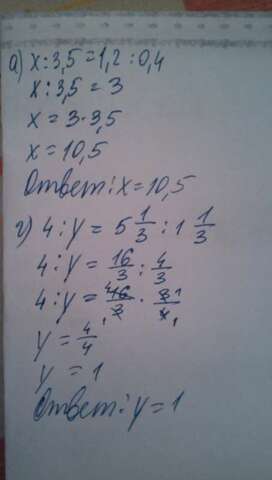 а) x:3,5=1,2:0,4
x:3,5=3
x=3·3,5
x=10,5
Ответ: x=10,5
г) 4:y=5 1/3:1 1/3
4:y=16/3:4/3
4:y=16/3·3/4
y=4/4
y=1
Ответ: y=1